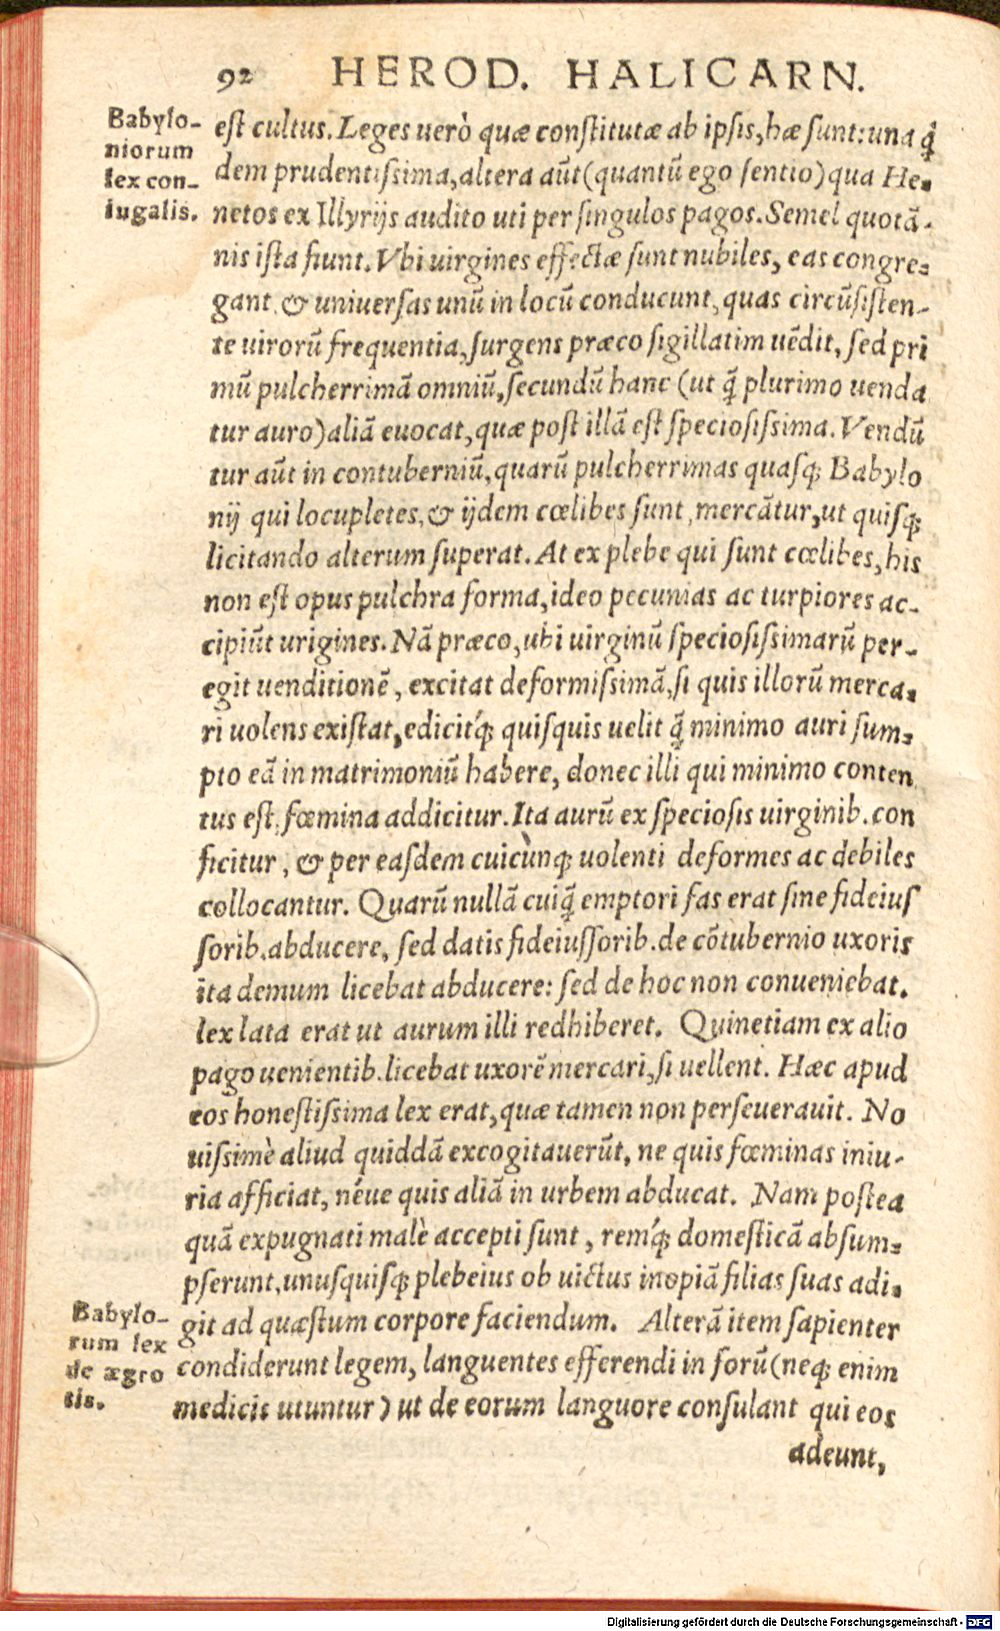 92 HEROD. HALICARN.
Babylo-
niorum
lex con-
iugalis.
est cultus. Leges uerò quæ constitutæ ab ipsis, hæ sunt: una q̃
dem prudentissima, altera aũt (quantũ ego sentio) qua He-
netos ex Illyrijs audito uti per singulos pagos. Semel quotã-
nis ista fiunt. Vbi uirgines effectæ sunt nubiles, eas congre-
gant, & uniuersas unũ in locũ conducunt, quas circũsisten-
te uirorũ frequentia, surgens præco sigillatim uẽdit, sed pri
mũ pulcherrimã omniũ, secundũ hanc (ut q̃ plurimo uenda
tur auro) aliã euocat, quæ post illã est speciosissima. Vendũ
tur aũt in contuberniũ, quarũ pulcherrimas quasq; Babylo
nij qui locupletes, & ijdem cœlibes sunt, mercãtur, ut quisq;
licitando alterum superat. At ex plebe qui sunt cœlibes, his
non est opus pulchra forma, ideo pecunias ac turpiores ac-
cipiũt urigines. Nã præco, ubi uirginũ speciosissimarũ per-
egit uenditionẽ, excitat deformissimã, si quis illorũ merca-
ri uolens existat, edicitq́; quisquis uelit q̃ minimo auri sum-
pto eã in matrimoniũ habere, donec illi qui minimo conten
tus est, fœmina addicitur. Ita aurũ ex speciosis uirginib. con
ficitur, & per easdem cuicùnq; uolenti deformes ac debiles
collocantur. Quarũ nullã cuiq̃ emptori fas erat sine fideius
sorib. abducere, sed datis fideiussorib. de cõtubernio uxoris
ita demum licebat abducere: sed de hoc non conueniebat.
lex lata erat ut aurum illi redhiberet. Quinetiam ex alio
pago uenientib. licebat uxorẽ mercari, si uellent. Hæc apud
eos honestissima lex erat, quæ tamen non perseuerauit. No
uissimè aliud quiddã excogitauerũt, ne quis fœminas iniu-
ria afficiat, néue quis aliã in urbem abducat. Nam postea
quã expugnati malè accepti sunt, remq́; domesticã absum-
pserunt, unusquisq; plebeius ob uictus inopiã filias suas adi-
git ad quæstum corpore faciendum. Alterã item sapienter
condiderunt legem, languentes efferendi in forũ (neq; enim
medicis utuntur) ut de eorum languore consulant qui eos
Babylo-
rum lex
de ægro
tis.
adeunt,
Digitalisierung gefördert durch die Deutsche Forschungsgemeinschaft - DFG